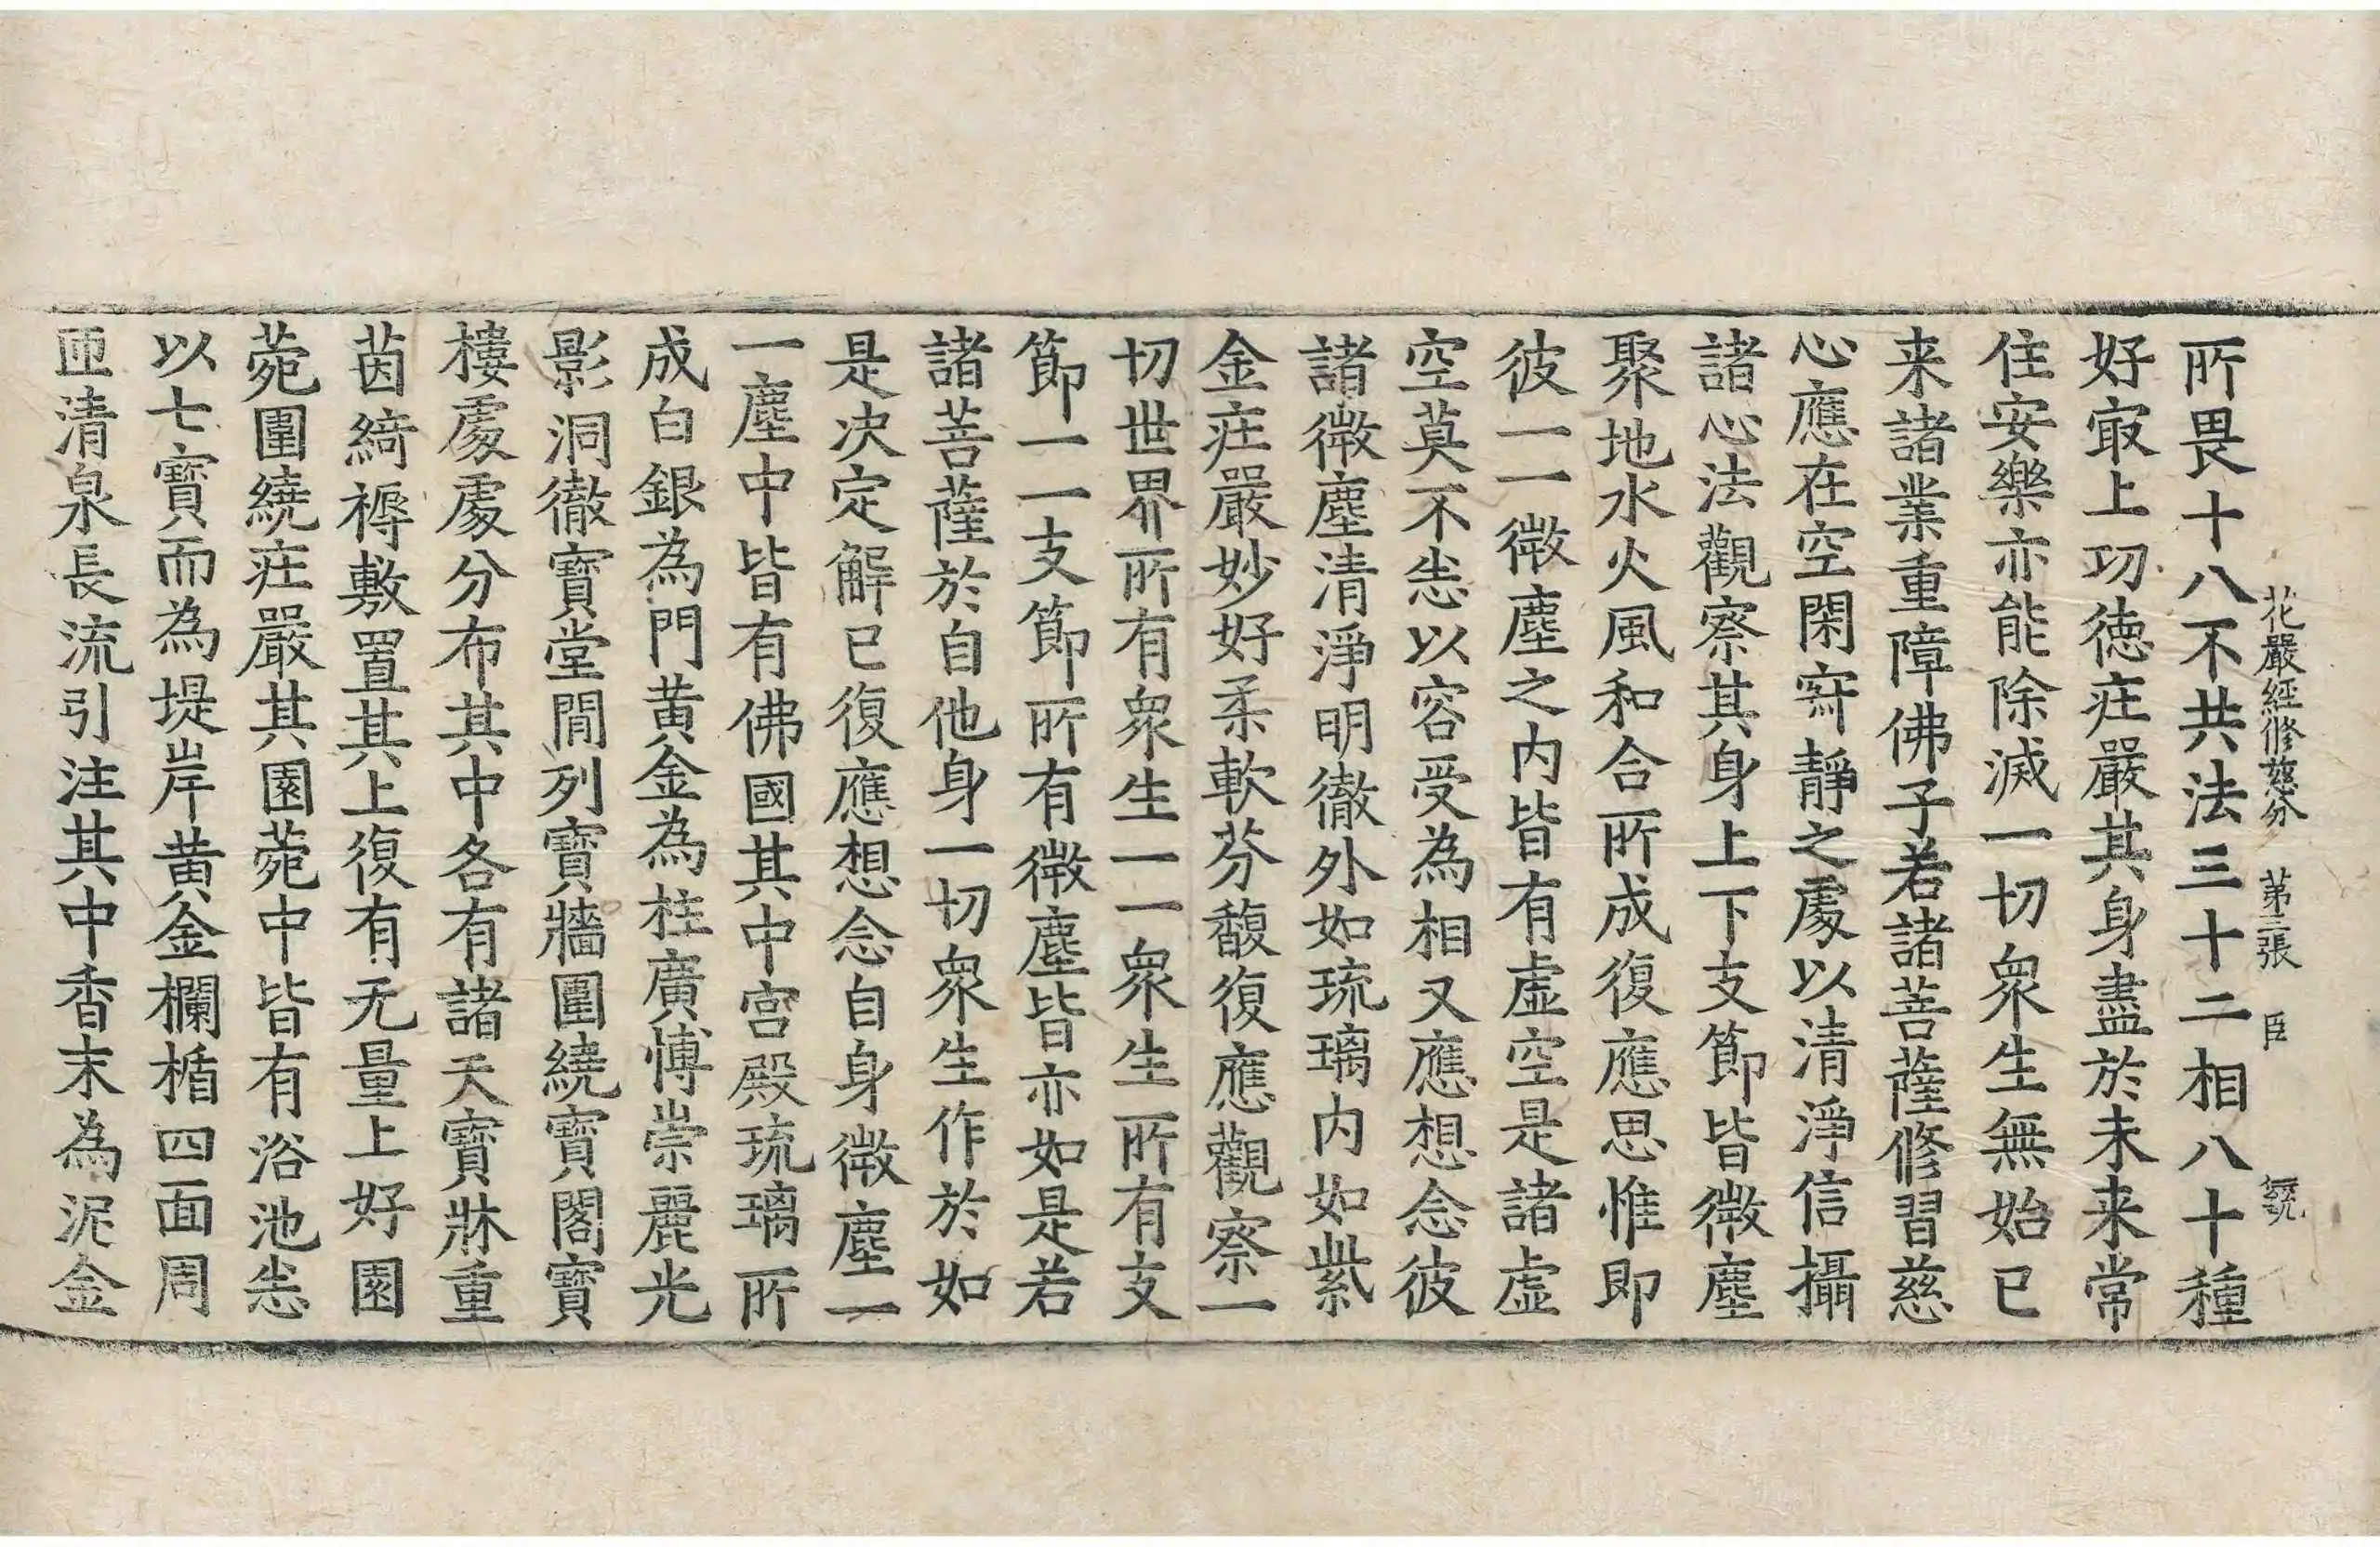 花嚴經修慈分 第三張 臣
所畏十八不共法三十二相八十種
好㝡上功徳庄嚴其身盡於未来常
住安樂亦能除滅一切衆生無始已
来諸業重障佛子若諸菩薩修習慈
心應在空閑寂靜之處以清淨信攝
諸心法觀察其身上下支節皆微塵
聚地水火風和合所成復應思惟即
彼一一微塵之内皆有虛空是諸虛
空莫不恙以容受為相又應想念彼
諸微塵清淨明徹外如琉璃内如紫
金庄嚴妙好柔軟芬馥復應觀察一
切世界所有衆生一一衆生所有支
節一一支節所有微塵皆亦如是若
諸菩薩於自他身一切衆生作於如
是决定解已復應想念自身微塵一
一塵中皆有佛國其中宫殿琉璃所
成白銀為門黄金為柱廣博崇麗光
影洞徹寶堂閒列寶牆圍繞寶閣寶
樓處處分布其中各有諸天寶牀重
茵綺褥敷置其上復有无量上好園
菀圍繞庄嚴其園菀中皆有浴池恙
以七寶而為堤岸黄金欄楯四面周
匝清泉長流引注其中香末為泥金